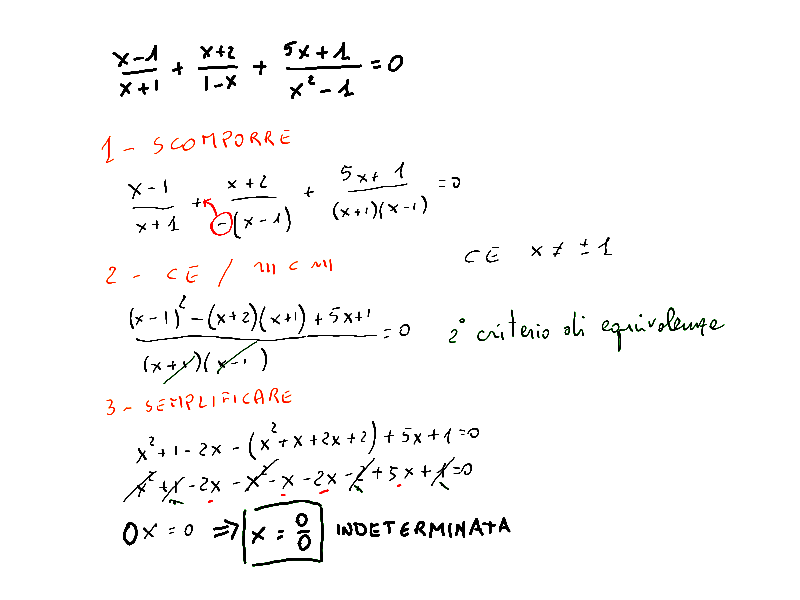 (x-1)/(x+1) + (x+2)/(1-x) + (5x+1)/(x²-1) = 0
1- SCOMPORRE
(x-1)/(x+1) + (x+2)/(-(x-1)) + (5x+1)/((x+1)(x-1)) = 0
CE x ≠ ±1
2 - CE / m c m
((x-1)² - (x+2)(x+1) + 5x+1)/((x+1)(x-1)) = 0 2° criterio di equivalenza
3- SEMPLIFICARE
x² + 1 - 2x - (x² + x + 2x + 2) + 5x + 1 = 0
x² + 1 - 2x - x² - x - 2x - 2 + 5x + 1 = 0
0x = 0 => x = 0/0 INDETERMINATA